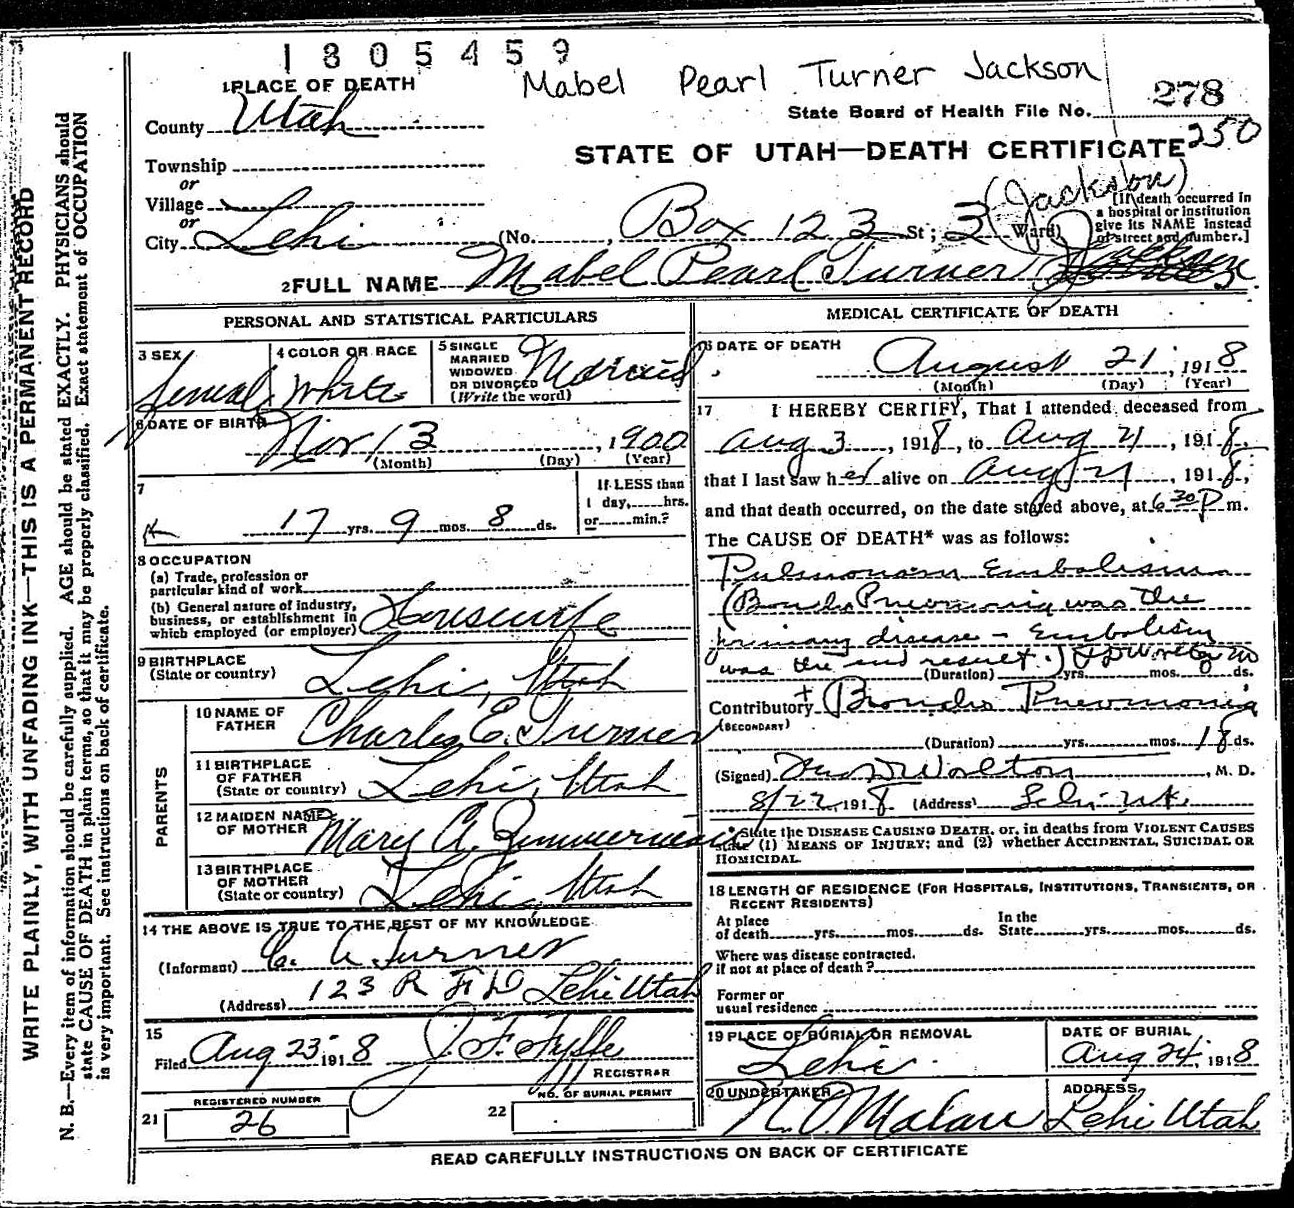 1805459
Mabel Pearl Turner Jackson
1 PLACE OF DEATH
County Utah
State Board of Health File No. 278
250
STATE OF UTAH—DEATH CERTIFICATE
Township
or
Village
or
City Lehi (No. , Box 123 St; 3 Ward)
(Jackson)
[If death occurred in
a hospital or institution
give its NAME instead
of street and number.]
2 FULL NAME Mabel Pearl Turner Jackson
PERSONAL AND STATISTICAL PARTICULARS
3 SEX
femal
4 COLOR OR RACE
White
5 SINGLE
MARRIED
WIDOWED
OR DIVORCED
(Write the word)
Married
6 DATE OF BIRTH
Nov 13, 1900
(Month) (Day) (Year)
7
17 yrs. 9 mos. 8 ds.
If LESS than
1 day, hrs.
or min.?
8 OCCUPATION
(a) Trade, profession or
particular kind of work
(b) General nature of industry,
business, or establishment in
which employed (or employer)
Housewife
9 BIRTHPLACE
(State or country)
Lehi, Utah
PARENTS
10 NAME OF
FATHER
Charles E. Turner
11 BIRTHPLACE
OF FATHER
(State or country)
Lehi, Utah
12 MAIDEN NAME
OF MOTHER
Mary A. Zimmerman
13 BIRTHPLACE
OF MOTHER
(State or country)
Lehi, Utah
14 THE ABOVE IS TRUE TO THE BEST OF MY KNOWLEDGE
(Informant) C. A. Turner
(Address) 123 R F D Lehi Utah
15
Filed Aug 23 1918 J. F. Fyffe
REGISTRAR
REGISTERED NUMBER
21 26
NO. OF BURIAL PERMIT
22
MEDICAL CERTIFICATE OF DEATH
16 DATE OF DEATH
August 21, 1918
(Month) (Day) (Year)
17 I HEREBY CERTIFY, That I attended deceased from
Aug 3, 1918, to Aug 21, 1918,
that I last saw her alive on Aug 21, 1918,
and that death occurred, on the date stated above, at 6 30 P m.
The CAUSE OF DEATH* was as follows:
Pulmonary Embolism
(Broncho Pneumonia was the
primary disease - Embolism
was the end result.)
(Duration) yrs. mos. ds.
Contributory Broncho Pneumonia
(SECONDARY)
(Duration) yrs. mos. 18 ds.
(Signed) Worlton, M. D.
8/22, 1918 (Address) Lehi Ut.
*State the DISEASE CAUSING DEATH, or, in deaths from VIOLENT CAUSES
state (1) MEANS OF INJURY; and (2) whether ACCIDENTAL, SUICIDAL OR
HOMICIDAL.
18 LENGTH OF RESIDENCE (FOR HOSPITALS, INSTITUTIONS, TRANSIENTS, OR
RECENT RESIDENTS)
At place
of death yrs. mos. ds.
In the
State yrs. mos. ds.
Where was disease contracted.
if not at place of death?
Former or
usual residence
19 PLACE OF BURIAL OR REMOVAL
Lehi
DATE OF BURIAL
Aug 24, 1918
20 UNDERTAKER
N. O. Malan
ADDRESS
Lehi Utah
READ CAREFULLY INSTRUCTIONS ON BACK OF CERTIFICATE
WRITE PLAINLY, WITH UNFADING INK—THIS IS A PERMANENT RECORD
N. B.—Every item of information should be carefully supplied. AGE should be stated EXACTLY. PHYSICIANS should
state CAUSE OF DEATH in plain terms, so that it may be properly classified. Exact statement of OCCUPATION
is very important. See instructions on back of certificate.